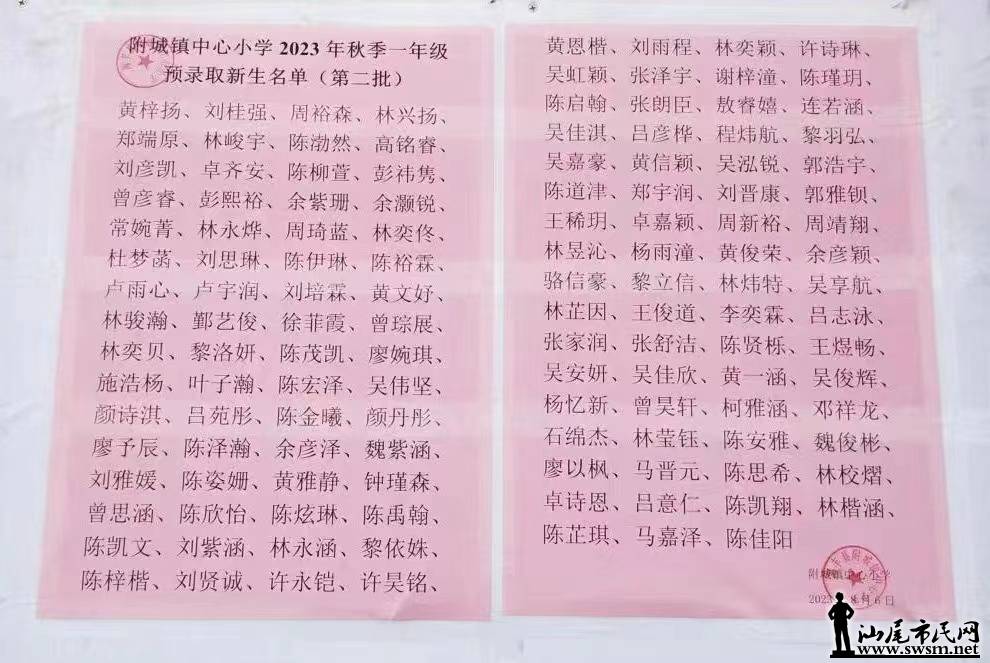 附城镇中心小学2023年秋季一年级
预录取新生名单（第二批）
黄梓扬、刘桂强、周裕森、林兴扬、
郑端原、林峻宇、陈渤然、高铭睿、
刘彦凯、卓齐安、陈柳萱、彭祎隽、
曾彦睿、彭熙裕、余紫珊、余灏锐、
常婉菁、林永烨、周琦蓝、林奕佟、
杜梦菡、刘思琳、陈伊琳、陈裕霖、
卢雨心、卢宇润、刘培霖、黄文妤、
林骏瀚、鄞艺俊、徐菲霞、曾琮展、
林奕贝、黎洛妍、陈茂凯、廖婉琪、
施浩杨、叶子瀚、陈宏泽、吴伟坚、
颜诗淇、吕苑彤、陈金曦、颜丹彤、
廖予辰、陈泽瀚、余彦泽、魏紫涵、
刘雅媛、陈姿姗、黄雅静、钟瑾森、
曾思涵、陈欣怡、陈炫琳、陈禹翰、
陈凯文、刘紫涵、林永涵、黎依姝、
陈梓楷、刘贤诚、许永铠、许昊铭、
黄恩楷、刘雨程、林奕颖、许诗琳、
吴虹颖、张泽宇、谢梓潼、陈瑾玥、
陈启翰、张朗臣、敖睿嬉、连若涵、
吴佳淇、吕彦桦、程炜航、黎羽弘、
吴嘉豪、黄信颖、吴泓锐、郭浩宇、
陈道津、郑宇润、刘晋康、郭雅钡、
王稀玥、卓嘉颖、周新裕、周靖翔、
林昱沁、杨雨潼、黄俊荣、余彦颖、
骆信豪、黎立信、林炜特、吴享航、
林芷因、王俊道、李奕霖、吕志泳、
张家润、张舒洁、陈贤栎、王煜畅、
吴安妍、吴佳欣、黄一涵、吴俊辉、
杨忆新、曾昊轩、柯雅涵、邓祥龙、
石绵杰、林莹钰、陈安雅、魏俊彬、
廖以枫、马晋元、陈思希、林校熠、
卓诗恩、吕意仁、陈凯翔、林楷涵、
陈芷琪、马嘉泽、陈佳阳
附城镇中心小
2023 8月6日
汕尾市民网
www.swsm.net